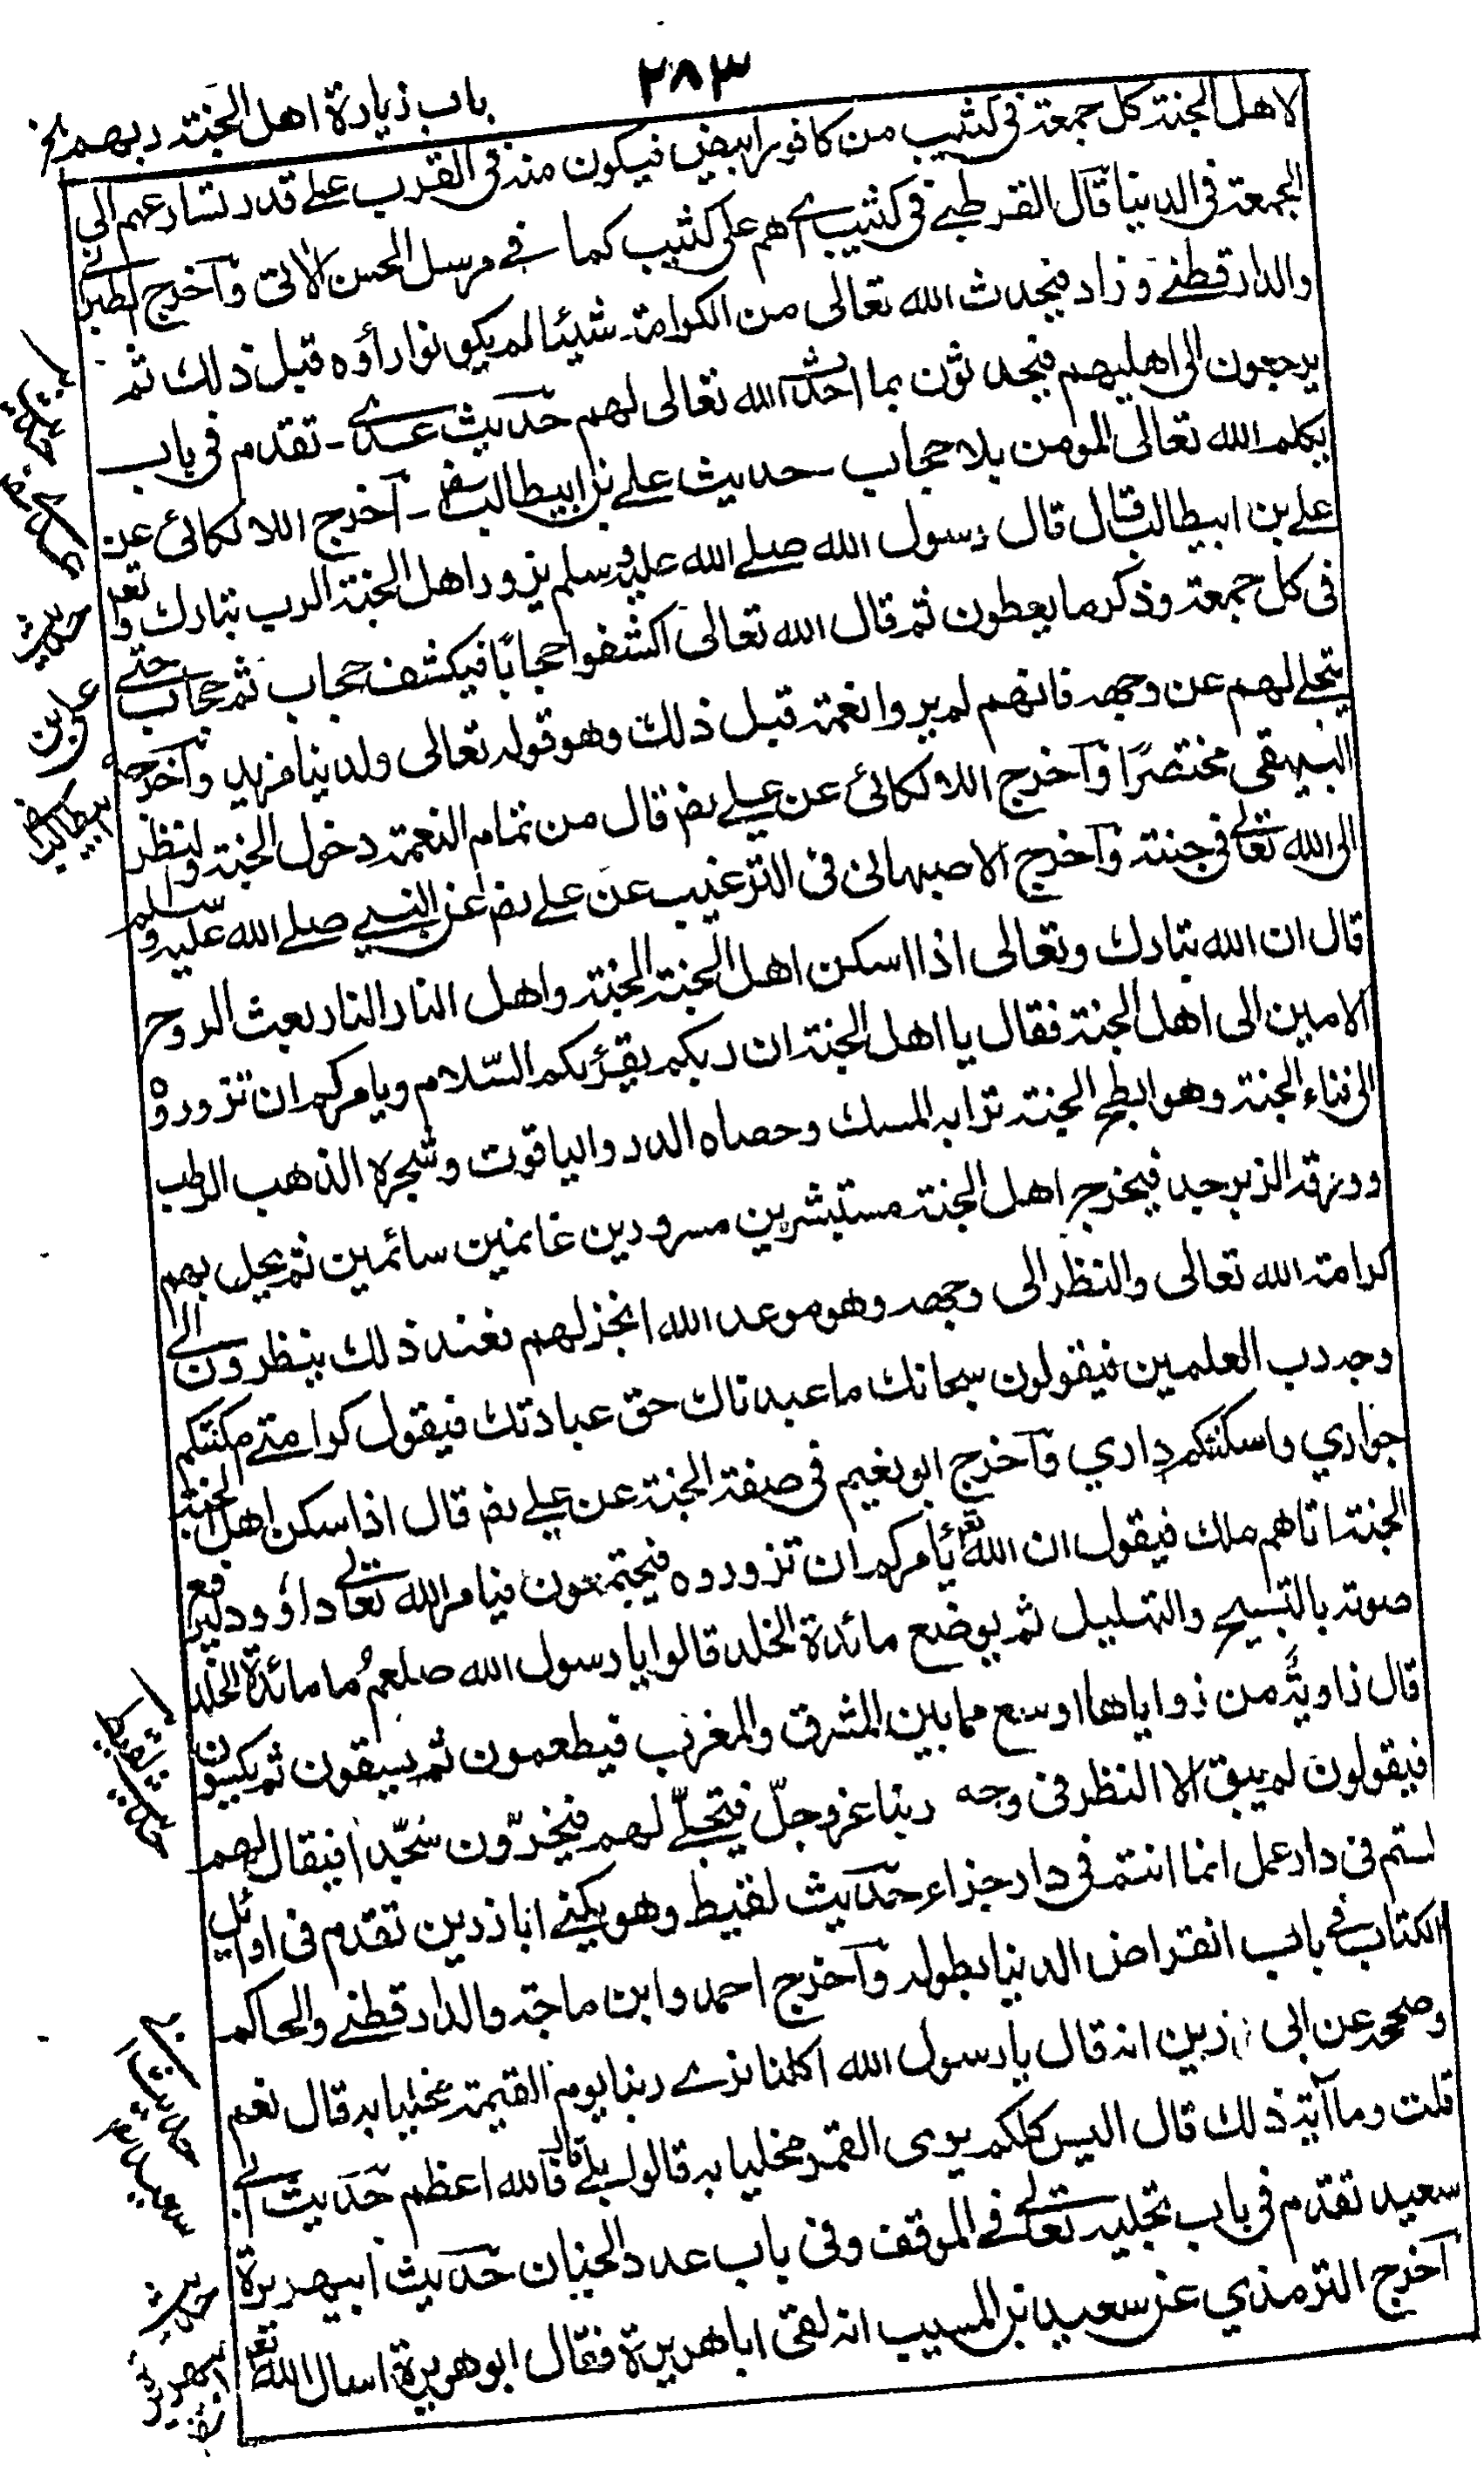 ٢٨٣
باب زيارة اهل الجنة ربهم الخ
لاهل الجنة كل جمعة فى كثيب من كافور ابيض فيكون منه فى القرب على قدر تسارعهم الى
الجمعة فى الدنيا قال القرطبى فى كثيب اى هم على كثيب كما فى مرسل الحسن الاتى وآخرج الطبرانى
والدارقطنى وزاد فيحدث الله تعالى من الكرامة شيئا لم يكونوا رأوه قبل ذلك ثم
يرجعون الى اهليهم فيحدثون بما احدث الله تعالى لهم حديث عدى - تقدم فى باب
يكلم الله تعالى المومن بلا حجاب - حديث على بن ابيطالب رض - آخرج اللالكائى عن
على بن ابيطالب قال قال رسول الله صلى الله عليه وسلم يزور اهل الجنة الرب تبارك وتع
فى كل جمعة وذكر ما يعطون ثم قال الله تعالى اكشفوا حجابا فيكشف حجاب ثم حجاب حتى
يتجلى لهم عن وجهه فانهم لم يروا نعمة قبل ذلك وهو قوله تعالى ولدينا مزيد وآخرجه
البيهقى مختصرًا وآخرج اللالكائى عن على رض قال من تمام النعمة دخول الجنة والنظر
الى الله تعالى فى جنته وآخرج الاصبهانى فى الترغيب عن على رض عن النبى صلى الله عليه وسلم
قال ان الله تبارك وتعالى اذا اسكن اهل الجنة الجنة واهل النار النار بعث الروح
الامين الى اهل الجنة فقال يا اهل الجنة ان ربكم يقرئكم السّلام ويامركم ان تزوروه
الى فناء الجنة وهو ابطح الجنة ترابه المسك وحصاه الدر والياقوت وشجره الذهب الرطب
وورقه الزبرجد فيخرج اهل الجنة مستبشرين مسرورين غانمين سائمين ثم يحل بهم
كرامة الله تعالى والنظر الى وجهه وهو موعد الله انجز لهم فعند ذلك ينظرون الى
وجه رب العلمين فيقولون سبحانك ما عبدناك حق عبادتك فيقول كرامتى مكنتكم
جوارى واسكنتكم دارى وآخرج ابو نعيم فى صفة الجنة عن على رض قال اذا سكن اهل الجنة
الجنة اتاهم ملك فيقول ان الله تع يأمركم ان تزوروه فيجتمعون فيامر الله تعالى داؤد ليرفع
صوته بالتسبيح والتهليل ثم يوضع مائدة الخلد قالوا يا رسول الله صلعم ما مائدة الخلد
قال زاوية من زواياها اوسع مما بين المشرق والمغرب فيطعمون ثم يسقون ثم يكسون
فيقولون لم يبق الا النظر فى وجه ربنا عز وجلّ فيتجلّى لهم فيخرّون سُجّدا فيقال لهم
لستم فى دار عمل انما انتم فى دار جزاء حديث لقيط وهو يكنى ابا زرين تقدم فى اوائل
الكتاب فى باب انقراض الدنيا بطوله وآخرج احمد وابن ماجة والدارقطنى والحاكم
وصححه عن ابى رزين انه قال يا رسول الله اكلنا نرى ربنا يوم القيمة مخليا به قال نعم
قلت وما آية ذلك قال اليس كلكم يرى القمر مخليا به قالوا بلى قال فالله اعظم حديث ابى
سعيد تقدم فى باب تجليه تعالى فى الموقف وفى باب عدد الجنان حديث ابيهريرة
آخرج الترمذي عن سعيد بن المسيب انه لقى ابا هريرة فقال ابو هريرة اسال الله تع
حديث
على بن
ابيطالب رض
حديث لقيط
حديث ابى
سعيد رض
حديث
ابيهريرة
رض